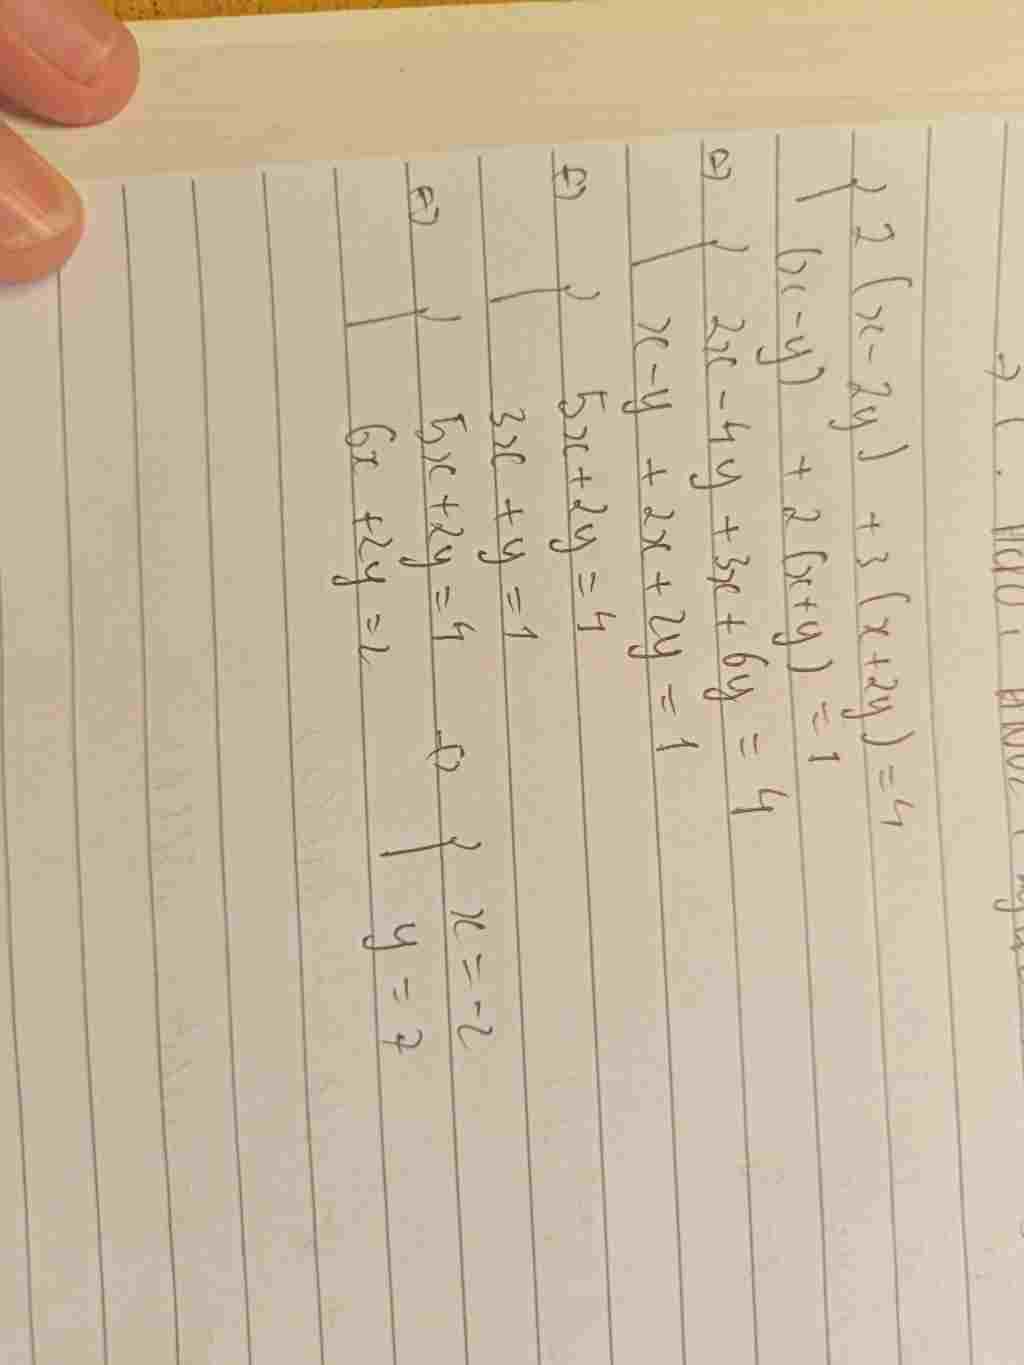 { 2(x-2y) + 3(x+2y) = 4
(x-y) + 2(x+y) = 1
⇔ { 2x - 4y + 3x + 6y = 4
x - y + 2x + 2y = 1
⇔ { 5x + 2y = 4
3x + y = 1
⇔ { 5x + 2y = 4 ⇔ { x = -2
6x + 2y = 2 y = 7